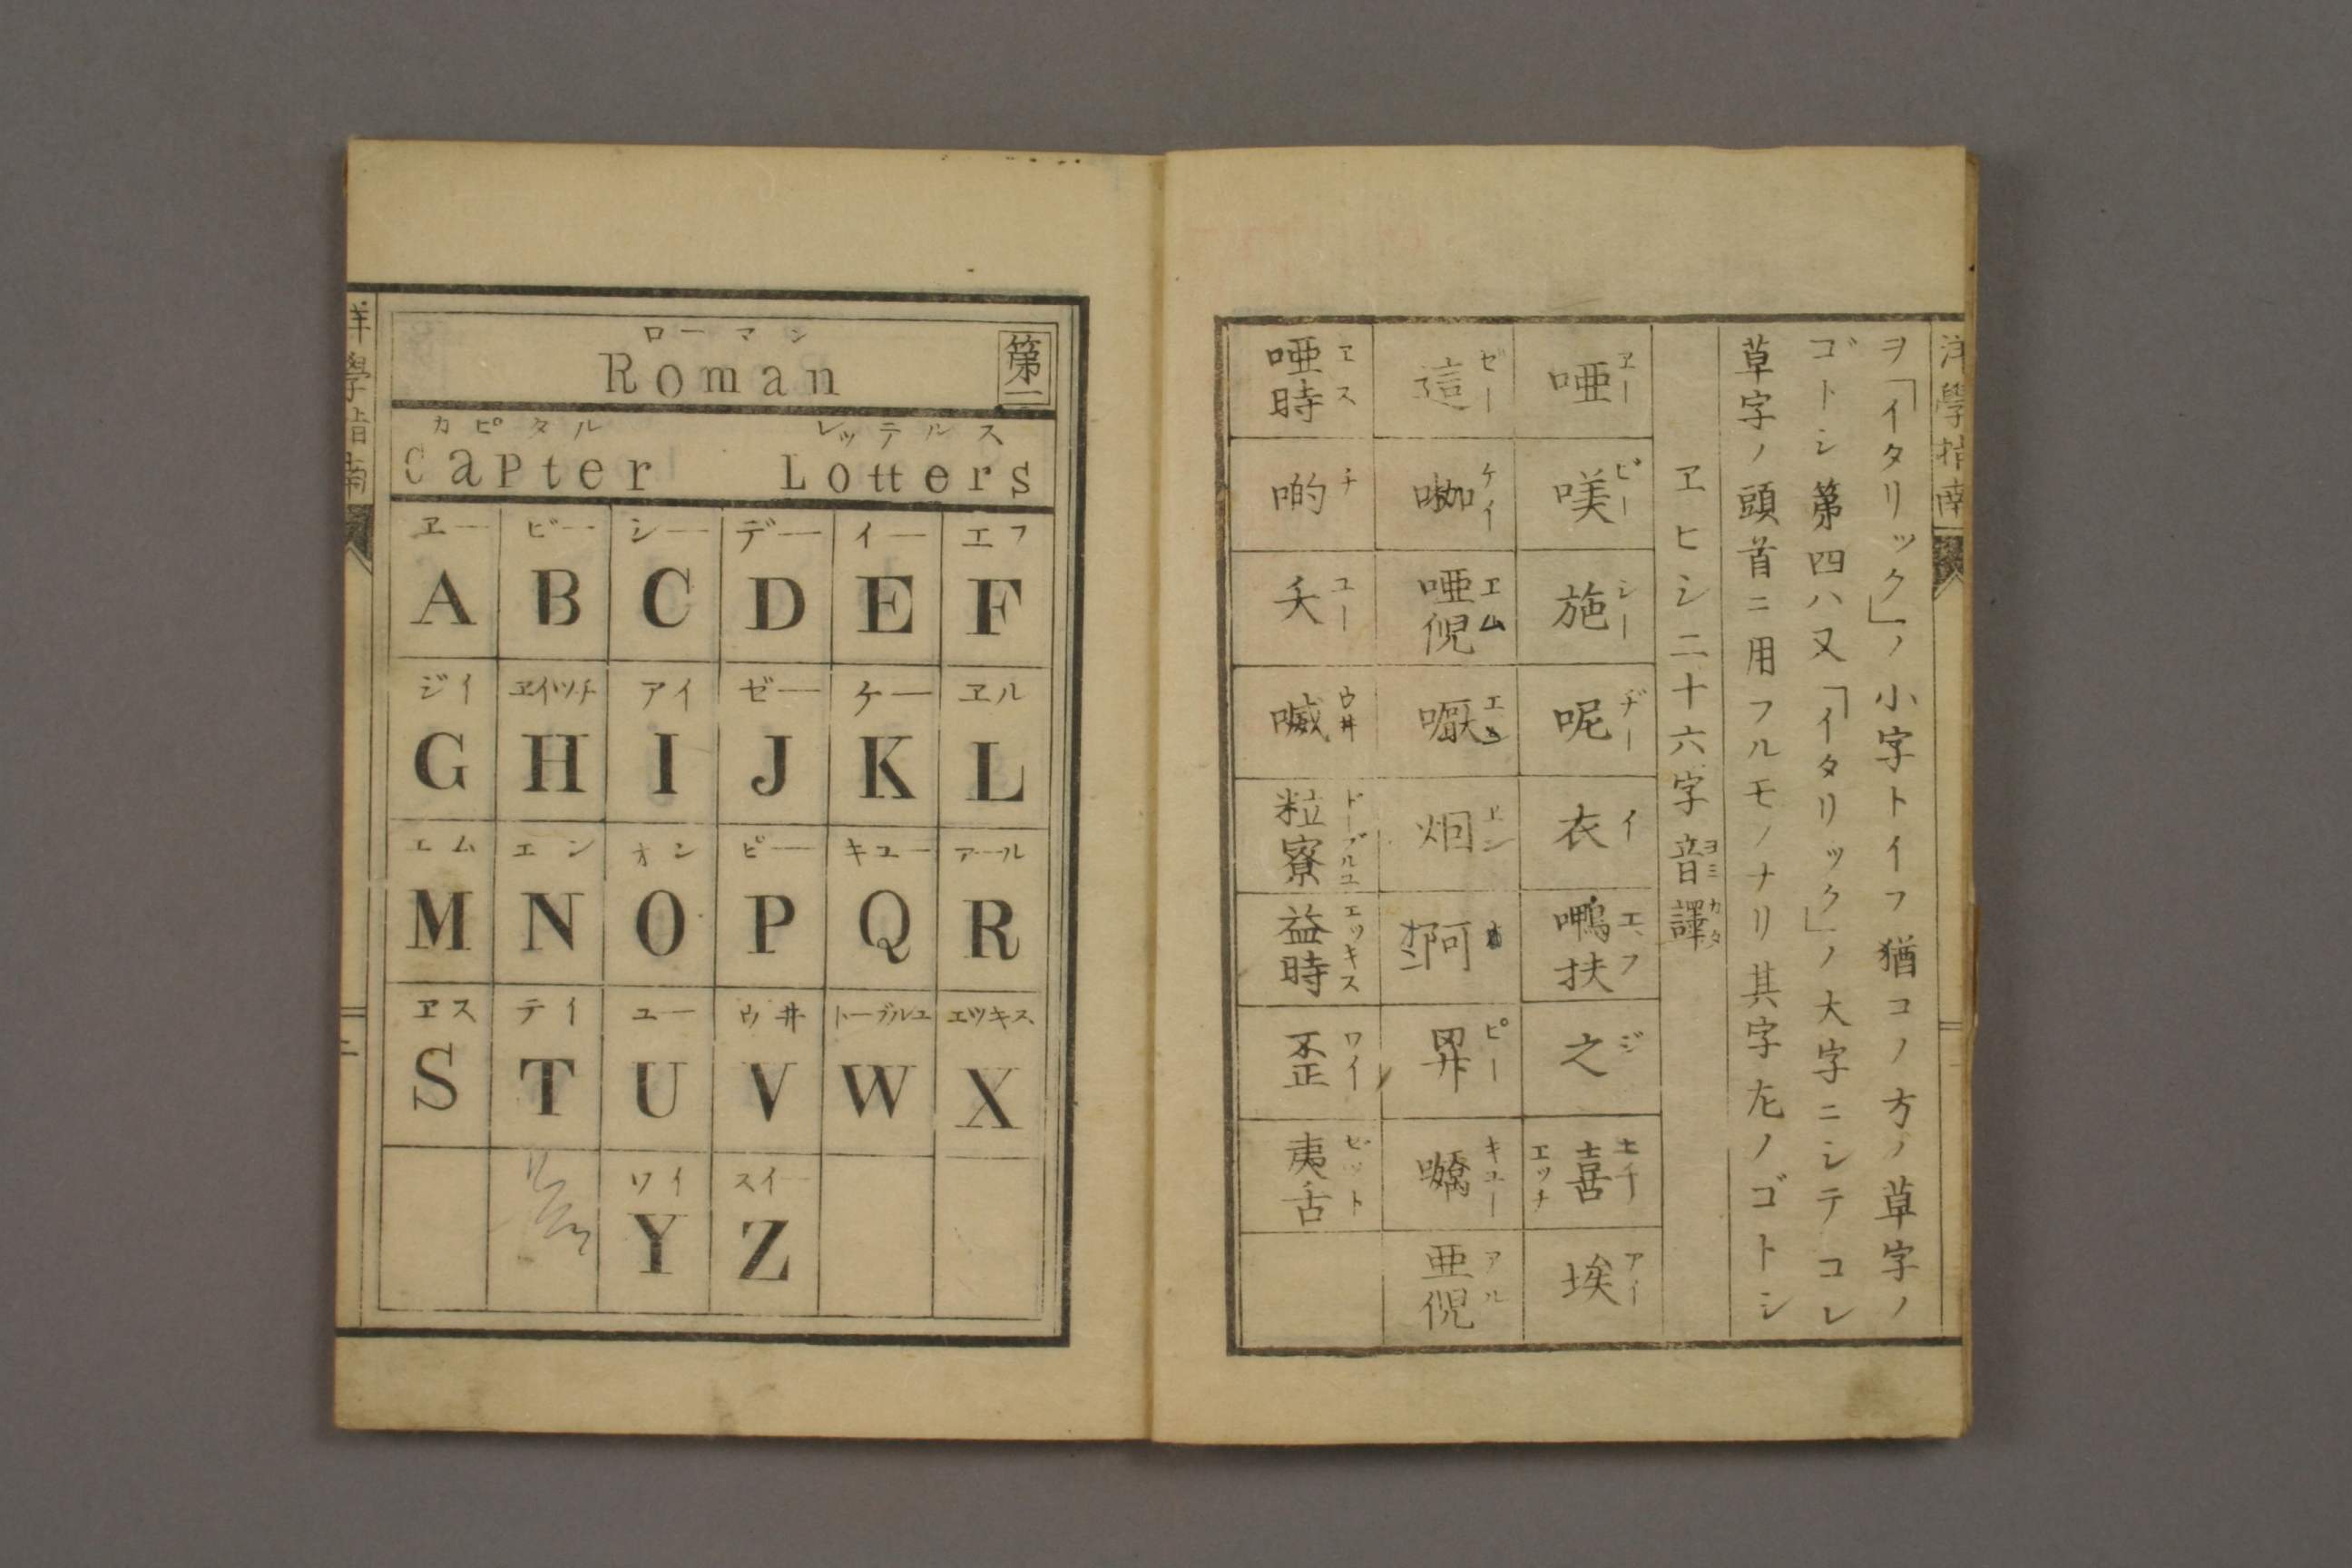 洋學指南
ヲ「イタリック」ノ小字トイフ猶コノ方ノ草字ノ
ゴトシ第四ハ又「イタリック」ノ大字ニシテコレ
草字ノ頭首ニ用フルモノナリ其字左ノゴトシ
ヱヒシ二十六字音譯
ヨミ カタ
唖 ヱー
㗖 ビー
施 シー
呢 ヂー
衣 イ
扶 エフ
之 ジ
喜 エッチ
埃 アイ
這 ゼー
ケイ
唖倪 エム
エン
ピー
キュー
亜倪 アル
唖時 ヱス
啲 チ
夭 ユー
喊 ウ井
粒寮 ドーブルユ
益時 エッキス
歪 ワイ
夷舌 ゼット
第一
ローマン
Roman
カピタル レッテルス
Capter Lotters
ヱー ビー シー デー イー エフ
A B C D E F
ジイ ヱイツチ アイ ゼー ケー ヱル
G H I J K L
エム エン オン ピー キユー アール
M N O P Q R
ヱス テイ ユー ウ井 トーブルユ エツキス
S T U V W X
ワイ スイー
Y Z
洋學指南
二